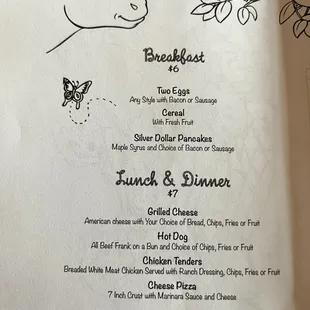 Breakfast
$6
Two Eggs
Any Style with Bacon or Sausage
Cereal
With Fresh Fruit
Silver Dollar Pancakes
Maple Syrus and Choice of Bacon or Sausage
Lunch & Dinner
$7
Grilled Cheese
American cheese with Your Choice of Bread, Chips, Fries or Fruit
Hot Dog
All Beef Frank on a Bun and Choice of Chips, Fries or Fruit
Chicken Tenders
Breaded White Meat Chicken Served with Ranch Dressing, Chips, Fries or Fruit
Cheese Pizza
7 Inch Crust with Marinara Sauce and Cheese